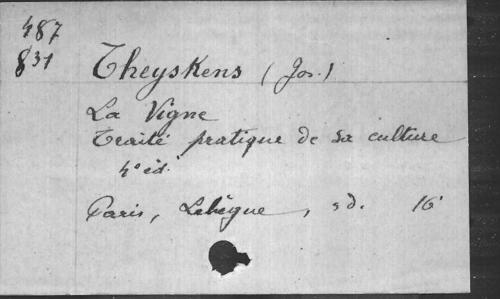 487
831
Theyskens (Jos.)
La Vigne
Traité pratique de sa culture
4e éd.
Paris, Lebègue, sd. 16